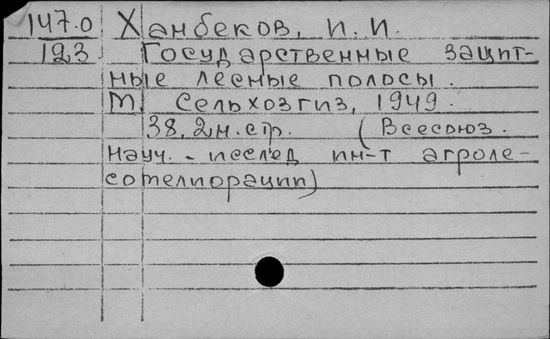 147.0 Ханбеков, И. И.
123 Государственные защит-
ные лесные полосы.
М. Сельхозгиз, 1949.
38, 2 н. стр. (Всесоюз.
науч. - исслед ин-т агроле-
сомелиорации)